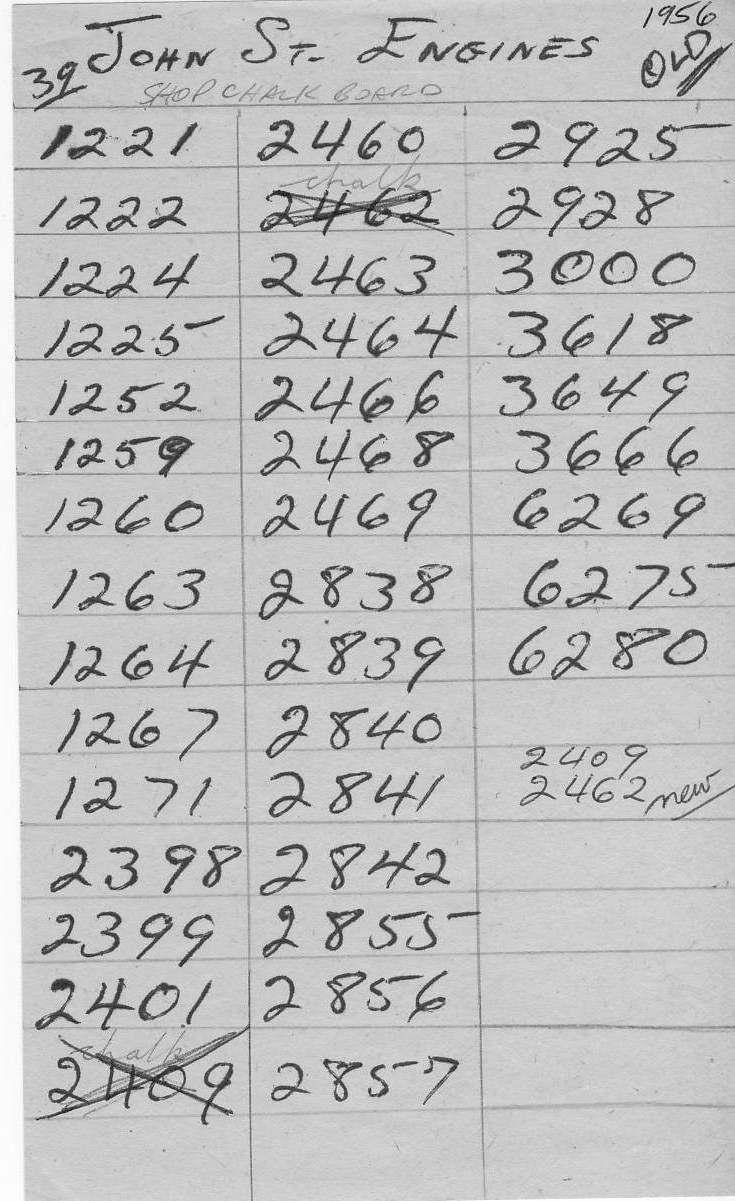 1956
39 JOHN ST. ENGINES OLD
SHOP CHALK BOARD
1221 2460 2925
chalk
1222 2462 2928
1224 2463 3000
1225 2464 3618
1252 2466 3649
1259 2468 3666
1260 2469 6269
1263 2838 6275
1264 2839 6280
1267 2840
2409
1271 2841 2462 new
2398 2842
2399 2855
2401 2856
chalk
2409 2857